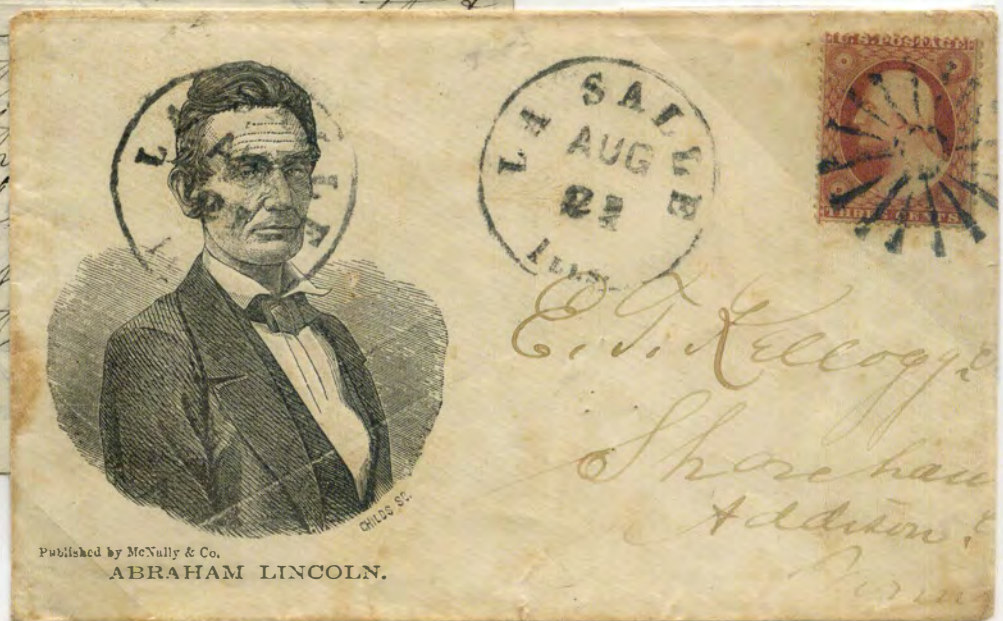 LA SALLE
AUG
ILL
THREE CENTS
E. T. Kellogg
Shoreham
Addison
CHILDS SC.
Published by McNally & Co.
ABRAHAM LINCOLN.